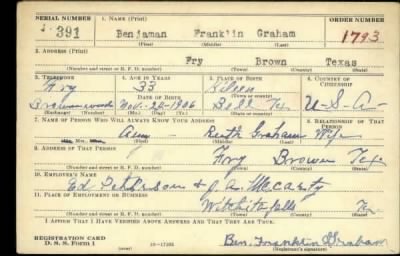 SERIAL NUMBER 1. NAME (Print) ORDER NUMBER
391 Benjaman Franklin Graham 1793
(First) (Middle) (Last)
2. ADDRESS (Print)
Fry Brown Texas
(Number and street or R. F. D. number) (Town) (County) (State)
3. TELEPHONE 4. AGE IN YEARS 5. PLACE OF BIRTH 6. COUNTRY OF CITIZENSHIP
Fry 33 Killeen
DATE OF BIRTH (Town or county)
Brownwood Nov. 24-1906 Bell Tex U-S-A-
(Exchange) (Number) (Mo.) (Day) (Yr.) (State or country)
7. NAME OF PERSON WHO WILL ALWAYS KNOW YOUR ADDRESS 8. RELATIONSHIP OF THAT PERSON
Mrs. Ruth Graham Wife
(Mr., Mrs., Miss) (First) (Middle) (Last)
9. ADDRESS OF THAT PERSON
Fry Brown Tex
(Number and street or R. F. D. number) (Town) (County) (State)
10. EMPLOYER'S NAME
Ed & J. A.
11. PLACE OF EMPLOYMENT OR BUSINESS
Tex.
(Number and street or R. F. D. number) (Town) (County) (State)
I AFFIRM THAT I HAVE VERIFIED ABOVE ANSWERS AND THAT THEY ARE TRUE.
REGISTRATION CARD
D. S. S. Form 1 (over) 16-17105 Ben. Franklin Graham
(Registrant's signature)